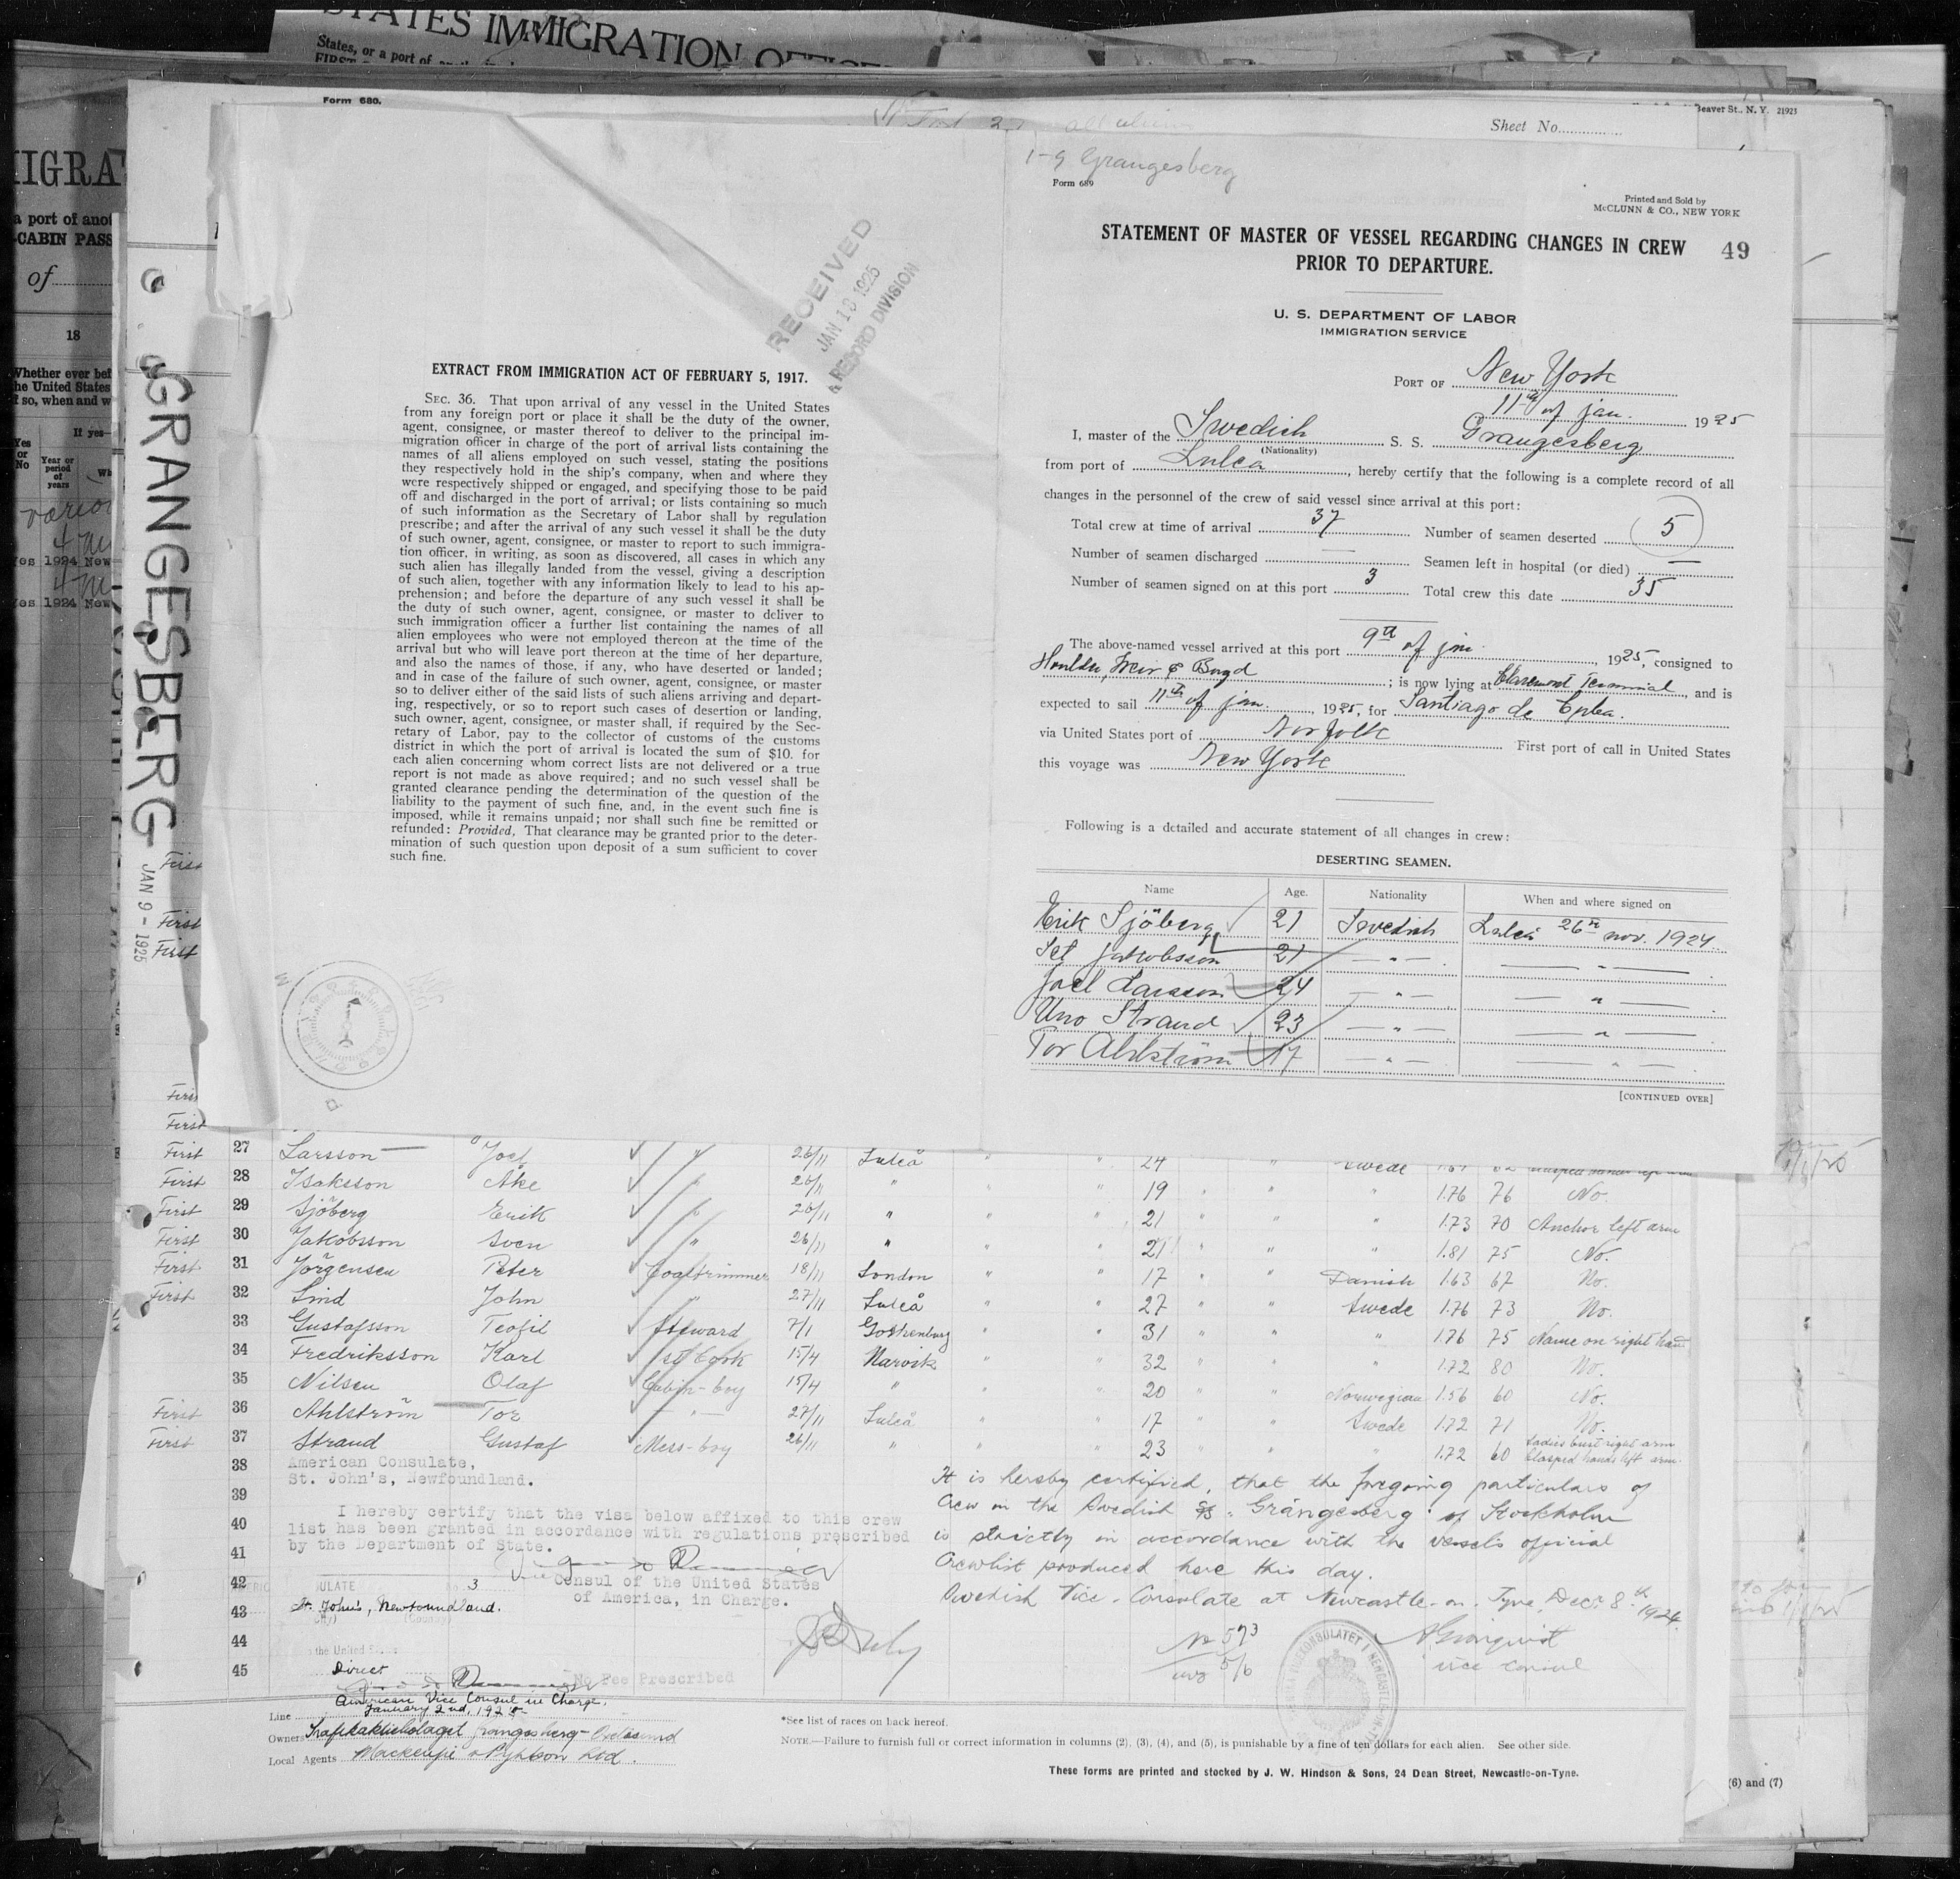 STATES IMMIGRATION
States, or a port of
Form 680.
Beaver St., N. Y. 21923
Sheet No.
1-9 Grangesberg
Form 689
Printed and Sold by
McCLUNN & CO., NEW YORK
STATEMENT OF MASTER OF VESSEL REGARDING CHANGES IN CREW
PRIOR TO DEPARTURE.
49
U. S. DEPARTMENT OF LABOR
IMMIGRATION SERVICE
PORT OF New York
11th of jan. 1925
I, master of the Swedish S. S. Grangesberg
(Nationality)
from port of Lulea, hereby certify that the following is a complete record of all
changes in the personnel of the crew of said vessel since arrival at this port:
Total crew at time of arrival 37 Number of seamen deserted 5
Number of seamen discharged — Seamen left in hospital (or died) —
Number of seamen signed on at this port 3 Total crew this date 35
The above-named vessel arrived at this port 9th of jan. 1925, consigned to
Houlder, Weir & Boyd; is now lying at Claremont Terminal, and is
expected to sail 11th of jan. 1925, for Santiago de Cuba.
via United States port of Norfolk First port of call in United States
this voyage was New York
Following is a detailed and accurate statement of all changes in crew:
DESERTING SEAMEN.
Name Age. Nationality When and where signed on
Erik Sjöberg 21 Swedish Lulea 26th nov. 1924.
Jakobsson 21 — " — — " —
Joel Larsson 24 — " — — " —
Uno Strand 23 — " — — " —
Tor Ahlström 17 — " — — " —
[CONTINUED OVER]
RECEIVED
JAN 13 1925
RECORD DIVISION
EXTRACT FROM IMMIGRATION ACT OF FEBRUARY 5, 1917.
SEC. 36. That upon arrival of any vessel in the United States
from any foreign port or place it shall be the duty of the owner,
agent, consignee, or master thereof to deliver to the principal im-
migration officer in charge of the port of arrival lists containing the
names of all aliens employed on such vessel, stating the positions
they respectively hold in the ship's company, when and where they
were respectively shipped or engaged, and specifying those to be paid
off and discharged in the port of arrival; or lists containing so much
of such information as the Secretary of Labor shall by regulation
prescribe; and after the arrival of any such vessel it shall be the duty
of such owner, agent, consignee, or master to report to such immigra-
tion officer, in writing, as soon as discovered, all cases in which any
such alien has illegally landed from the vessel, giving a description
of such alien, together with any information likely to lead to his ap-
prehension; and before the departure of any such vessel it shall be
the duty of such owner, agent, consignee, or master to deliver to
such immigration officer a further list containing the names of all
alien employees who were not employed thereon at the time of the
arrival but who will leave port thereon at the time of her departure,
and also the names of those, if any, who have deserted or landed;
and in case of the failure of such owner, agent, consignee, or master
so to deliver either of the said lists of such aliens arriving and depart-
ing, respectively, or so to report such cases of desertion or landing,
such owner, agent, consignee, or master shall, if required by the Sec-
retary of Labor, pay to the collector of customs of the customs
district in which the port of arrival is located the sum of $10. for
each alien concerning whom correct lists are not delivered or a true
report is not made as above required; and no such vessel shall be
granted clearance pending the determination of the question of the
liability to the payment of such fine, and, in the event such fine is
imposed, while it remains unpaid; nor shall such fine be remitted or
refunded: Provided, That clearance may be granted prior to the deter-
mination of such question upon deposit of a sum sufficient to cover
such fine.
GRANGESBERG
JAN 9 - 1925
a port of anot
CABIN PASS
of
18
Whether ever bef
the United States
if so, when and w
If yes—
Yes or No
Year or period of years
Yes 1924 New
Yes 1924 New
First
First
First
First
First
First 27 Larsson Joel " 26/11 Luleå " " 24 " Swede
First 28 Isaksson Åke " 26/11 " " " 19 " " " 1.76 76 No.
First 29 Sjöberg Erik " 26/11 " " " 21 " " " 1.73 70 Anchor left arm
First 30 Jakobsson Sven " 26/11 " " " 21 " " " 1.81 75 No.
First 31 Jörgensen Peter Coaltrimmer 18/11 London " " 17 " " Danish 1.63 67 No.
First 32 Lind John " 27/11 Luleå " " 27 " " Swede 1.76 73 No.
33 Gustafsson Teofil Steward 7/1 Gothenburg " " 31 " " " 1.76 75 Name on right hand
34 Fredriksson Karl 1st Cook 15/4 Narvik " " 32 " " " 1.72 80 No.
35 Nilsen Olaf Cabin-boy 15/4 " " " 20 " " Norwegian 1.56 60 No.
First 36 Ahlström Tor — " — 27/11 Luleå " " 17 " " Swede 1.72 71 No.
First 37 Strand Gustaf Mess-boy 26/11 " " " 23 " " " 1.72 60 Ladies bust right arm
Clasped hands left arm.
38 American Consulate,
St. John's, Newfoundland.
39
I hereby certify that the visa below affixed to this crew
40 list has been granted in accordance with regulations prescribed
by the Department of State.
41
42 Consul of the United States
of America, in Charge.
No. 3
43 St. John's, Newfoundland.
(City) (Country)
44
the United States
45 Direct
No Fee Prescribed
American Vice Consul in Charge.
Line January 2nd, 1925
Owners Trafikaktiebolaget Grangesberg-Oxelosund
Local Agents Mackenzie & Pyhlson Ltd.
It is hereby certified, that the foregoing particulars of
crew on the Swedish ss "Grängesberg" of Stockholm
is strictly in accordance with the vessels official
Crewlist produced here this day.
Swedish Vice-Consulate at Newcastle-on-Tyne, Decr 8th 1924
No 573
avg 5/6
vice consul
*See list of races on back hereof.
NOTE.—Failure to furnish full or correct information in columns (2), (3), (4), and (5), is punishable by a fine of ten dollars for each alien. See other side.
These forms are printed and stocked by J. W. Hindson & Sons, 24 Dean Street, Newcastle-on-Tyne.
(6) and (7)